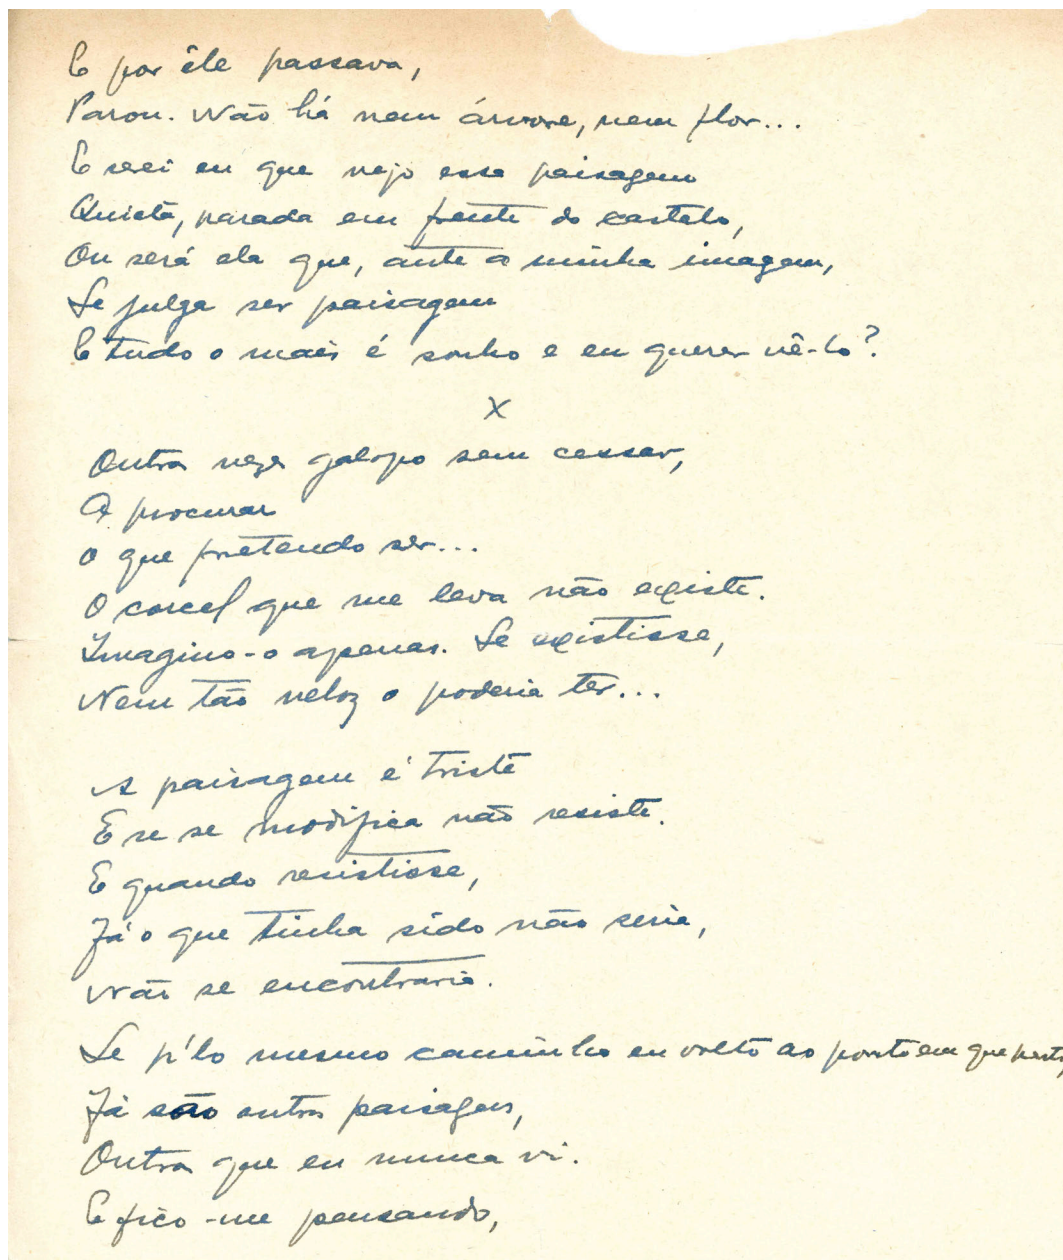 E por êle passava,
Parou. Não há nem árvore, nem flor...
E serei eu que vejo essa paisagem
Quieta, parada em frente do castelo,
Ou será ela que, ante a minha imagem,
Se julga ser paisagem
E tudo o mais é sonho e eu querer vê-lo?
X
Outra vez galopo sem cessar,
A procurar
O que pretendo ser...
O corcel que me leva não existe.
Imagino-o apenas. Se existisse,
Nem tão veloz o poderia ter...
A paisagem é triste
E se se modifica não resiste.
E quando resistisse,
Já o que tinha sido não seria,
Não se encontraria.
Se p'lo mesmo caminho eu volto ao ponto em que parti,
Já são outras paisagens,
Outra que eu nunca vi.
E fico-me pensando,